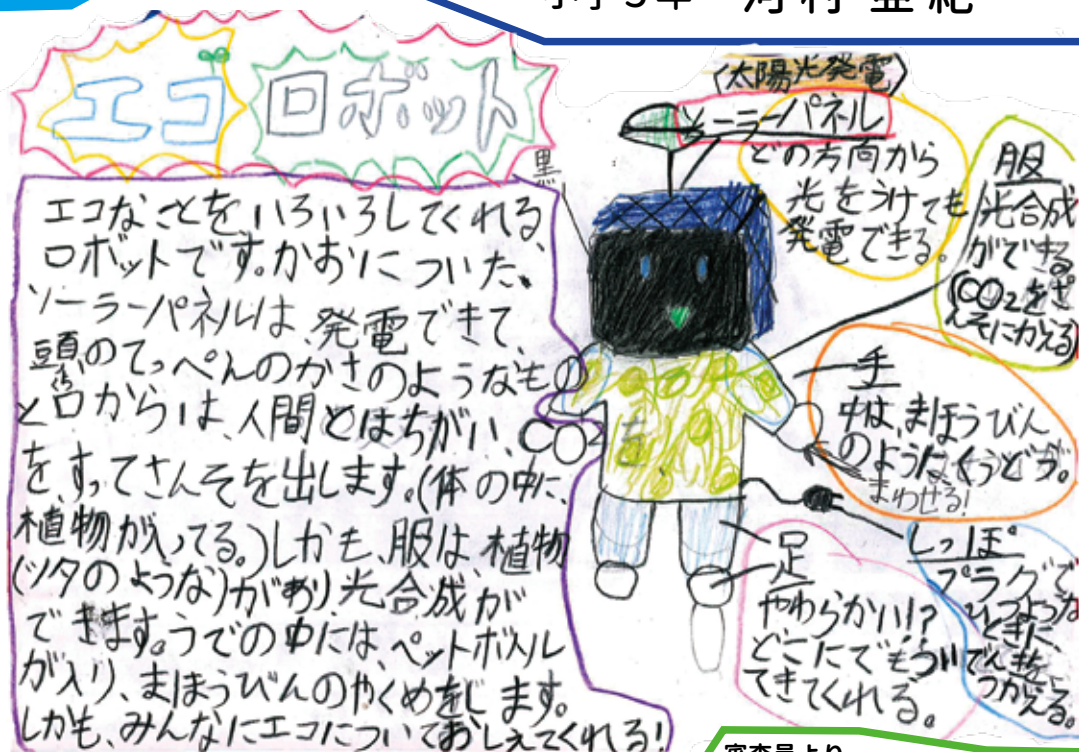 小学5年 河村 亜紀
エコロボット
エコなことをいろいろしてくれる
ロボットです。かおについた、
ソーラーパネルは、発電できて、
頭のてっぺんのかさのようなもの
と口からは、人間とはちがい、CO2
を、すってさんそを出します。(体の中に、
植物が入ってる。)しかも、服は、植物
(ツタのような)があり光合成が
できます。うでの中には、ペットボトル
が入り、まほうびんのやくめをします。
しかも、みんなにエコについておしえてくれる!
黒
(太陽光発電)
ソーラーパネル
どの方向から
光をうけても
発電できる。
服
光合成
ができる
(CO2をさ
んそにかえる)
手
中は、まほうびん
のようなくうどう。
まわせる!
しっぽ
プラグで
ひつような
ときに、
でんきを
つかえる。
足
やわらかい!?
どこにでもついて
きてくれる。
審査員より